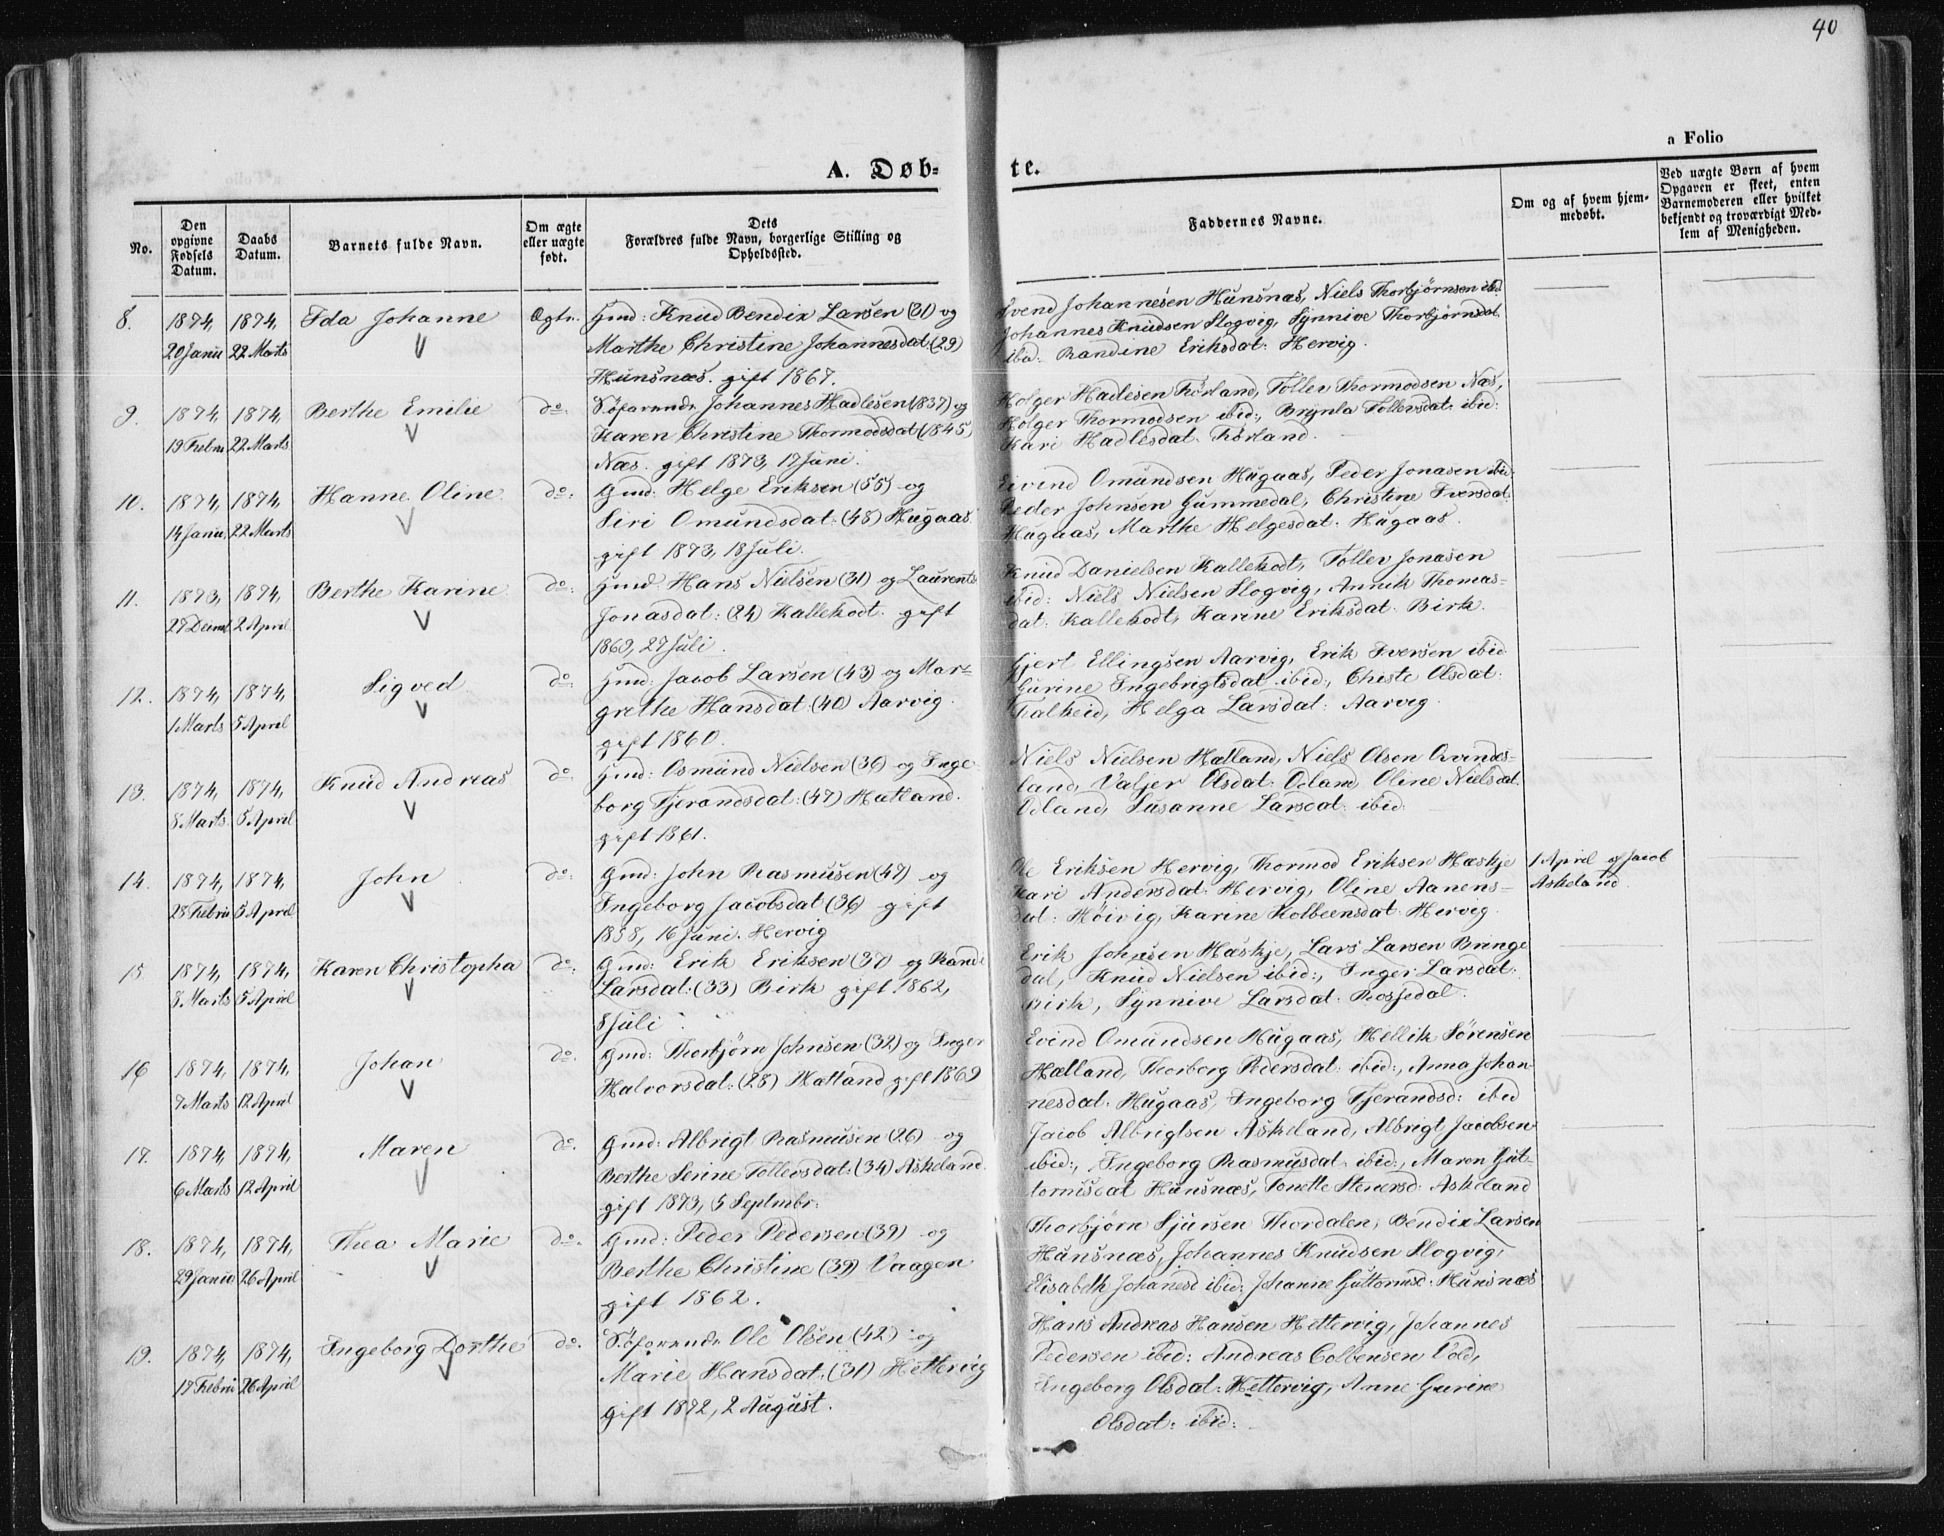 40
a Folio
A. Døb-
te.
No.
Den opgivne Fødsels Datum.
Daabs Datum.
Barnets fulde Navn.
Om ægte eller uægte født.
Dets Forældres fulde Navn, borgerlige Stilling og Opholdssted.
Faddernes Navne.
Om og af hvem hjem-
medøbt.
Ved uægte Børn af hvem
Opgaven er skeet, enten
Barnemoderen eller hvilket
bekjendt og troværdigt Med-
lem af Menigheden.
8. 1874, 20 Janu 1874, 22 Marts Ida Johanne Ægte.
Gmd: Knud Bendix Larsen (31) og
Marthe Christine Johannesdat: (29)
Hunsnæs. gift 1867.
Svend Johannesen Hunsnæs, Niels Thorbjørnsen ibd
Johannes Knudsen Slogvig, Synnive Thorbjørnsdat
ibd: Randine Eriksdat: Hervig.
9. 1874, 19 Febru 1874, 22 Marts Berthe Emilie do:
Søfarende Johannes Hadlesen (1837) og
Karen Christine Thormodsdat (1845)
Næs. gift 1873, 17 Juni.
Holger Hadlesen Førland, Tollev Thormodsen Næs,
Holger Thormodsen ibid:, Brynla Tollevsdat: ibid:
Kari Hadlesdat: Førland.
10. 1874, 14 Janu, 1874, 22 Marts Hanne Oline do:
Gmd: Helge Eriksen (55) og
Siri Omundsdat: (48) Hugaas
gift 1873, 18 Juli.
Eivind Omundsen Hugaas, Peder Jonasen ibd
Peder Johnsen Gummedal, Christine Iversdat:
Hugaas, Marthe Helgesdat: Hugaas.
11. 1873, 27 Decmb 1874, 2 April Berthe Karine do:
Gmd: Hans Nielsen (31) og Laurents
Jonasdat: (24) Kallekodt. gift
1869, 27 Juli.
Knud Danielsen Kallekodt, Tollev Jonasen
ibid: Niels Nielsen Slogvig, Annik Thomas-
dat: Kallekodt, Karine Eriksdat: Birk.
12. 1874, 1 Marts 1874, 5 April Sigved do:
Gmd: Jacob Larsen (43) og Mar-
grethe Hansdat: (40) Aarvig.
gift 1860.
Gjert Ellingsen Aarvig, Erik Iversen ibid
Gurine Ingebrigtsdat: ibid:, Christe Olsdat:
Falkeid, Helga Larsdat: Aarvig.
13. 1874, 8 Marts. 1874, 5 April Knud Andreas do
Gmd: Osmund Nielsen (36) og Inge-
borg Tjerandsdat: (47) Hatland.
gift 1861.
Niels Nielsen Hatland, Niels Olsen Qvinds-
land, Valjer Olsdat: Odland, Oline Nielsdat
Odland, Susanne Larsdat: ibid:
14. 1874, 28 Febru 1874, 5 April John do:
Gmd: John Rasmusen (47) og
Ingeborg Jacobsdat (36) gift
1858, 16 Juni. Hervig
Ole Eriksen Hervig, Thormod Eriksen Hæskje
Kari Andersdat: Hervig, Oline Aanens-
dat: Høivig, Karine Kolbeensdat: Hervig.
1 April af Jacob
Askeland.
15 1874, 8 Marts 1874, 5 April Karen Christopha do:
Gmd: Erik Eriksen (37) og Randi
Larsdat: (33) Birk gift 1862,
8 Juli
Erik Johnsen Hæskje, Lars Larsen Bringe
dal, Knud Nielsen ibid:, Inger Larsdat:
Birk, Synnive Larsdat: Rossedal.
16 1874, 7 Marts 1874, 12 April Johan do:
Gmd: Thorbjørn Johnsen (32) og Inger
Halvorsdat: (28) Hatland gift 1869
Evind Omundsen Hugaas, Hellik Sørensen
Hælland, Thorborg Pedersdat: ibid:, Anna Johan-
nesdat: Hugaas, Ingeborg Tjerandsd: ibid
17. 1874, 6 Marts 1874, 12 April Maren do:
Gmd: Albrigt Rasmusen (26) og
Berthe Serine Tollevsdat: (34) Askeland.
gift 1873, 5 Septmbr:
Jacob Albrigtsen Askeland, Albrigt Jacobsen
ibid:, Ingeborg Rasmusdat: ibid:, Maren Gut-
tormsdat Hunsnæs, Tonette Stenersd: Askeland
18. 1874, 29 Janu 1874, 26 April Thea Marie do:
Gmd: Peder Pedersen (39) og
Berthe Christine (39) Vaagen
gift 1862.
Thorbjørn Sjursen Thordalen, Bendix Larsen
Hunsnæs, Johannes Knudsen Slogvig,
Elisabeth Johanesd ibid:, Johanne Guttormsd: Hunsnæs
19. 1874, 17 Febru 1874, 26 April Ingeborg Dorthe do:
Søfarende Ole Olsen (42) og
Marie Hansdat: (31) Hettervig
gift 1872, 2 August.
Hans Andreas Hansen Hettervig, Johannes
Pedersen ibid: Andreas Colbensen Vold,
Ingeborg Olsdat: Hettervig, Anne Gurine
Olsdat: ibid: